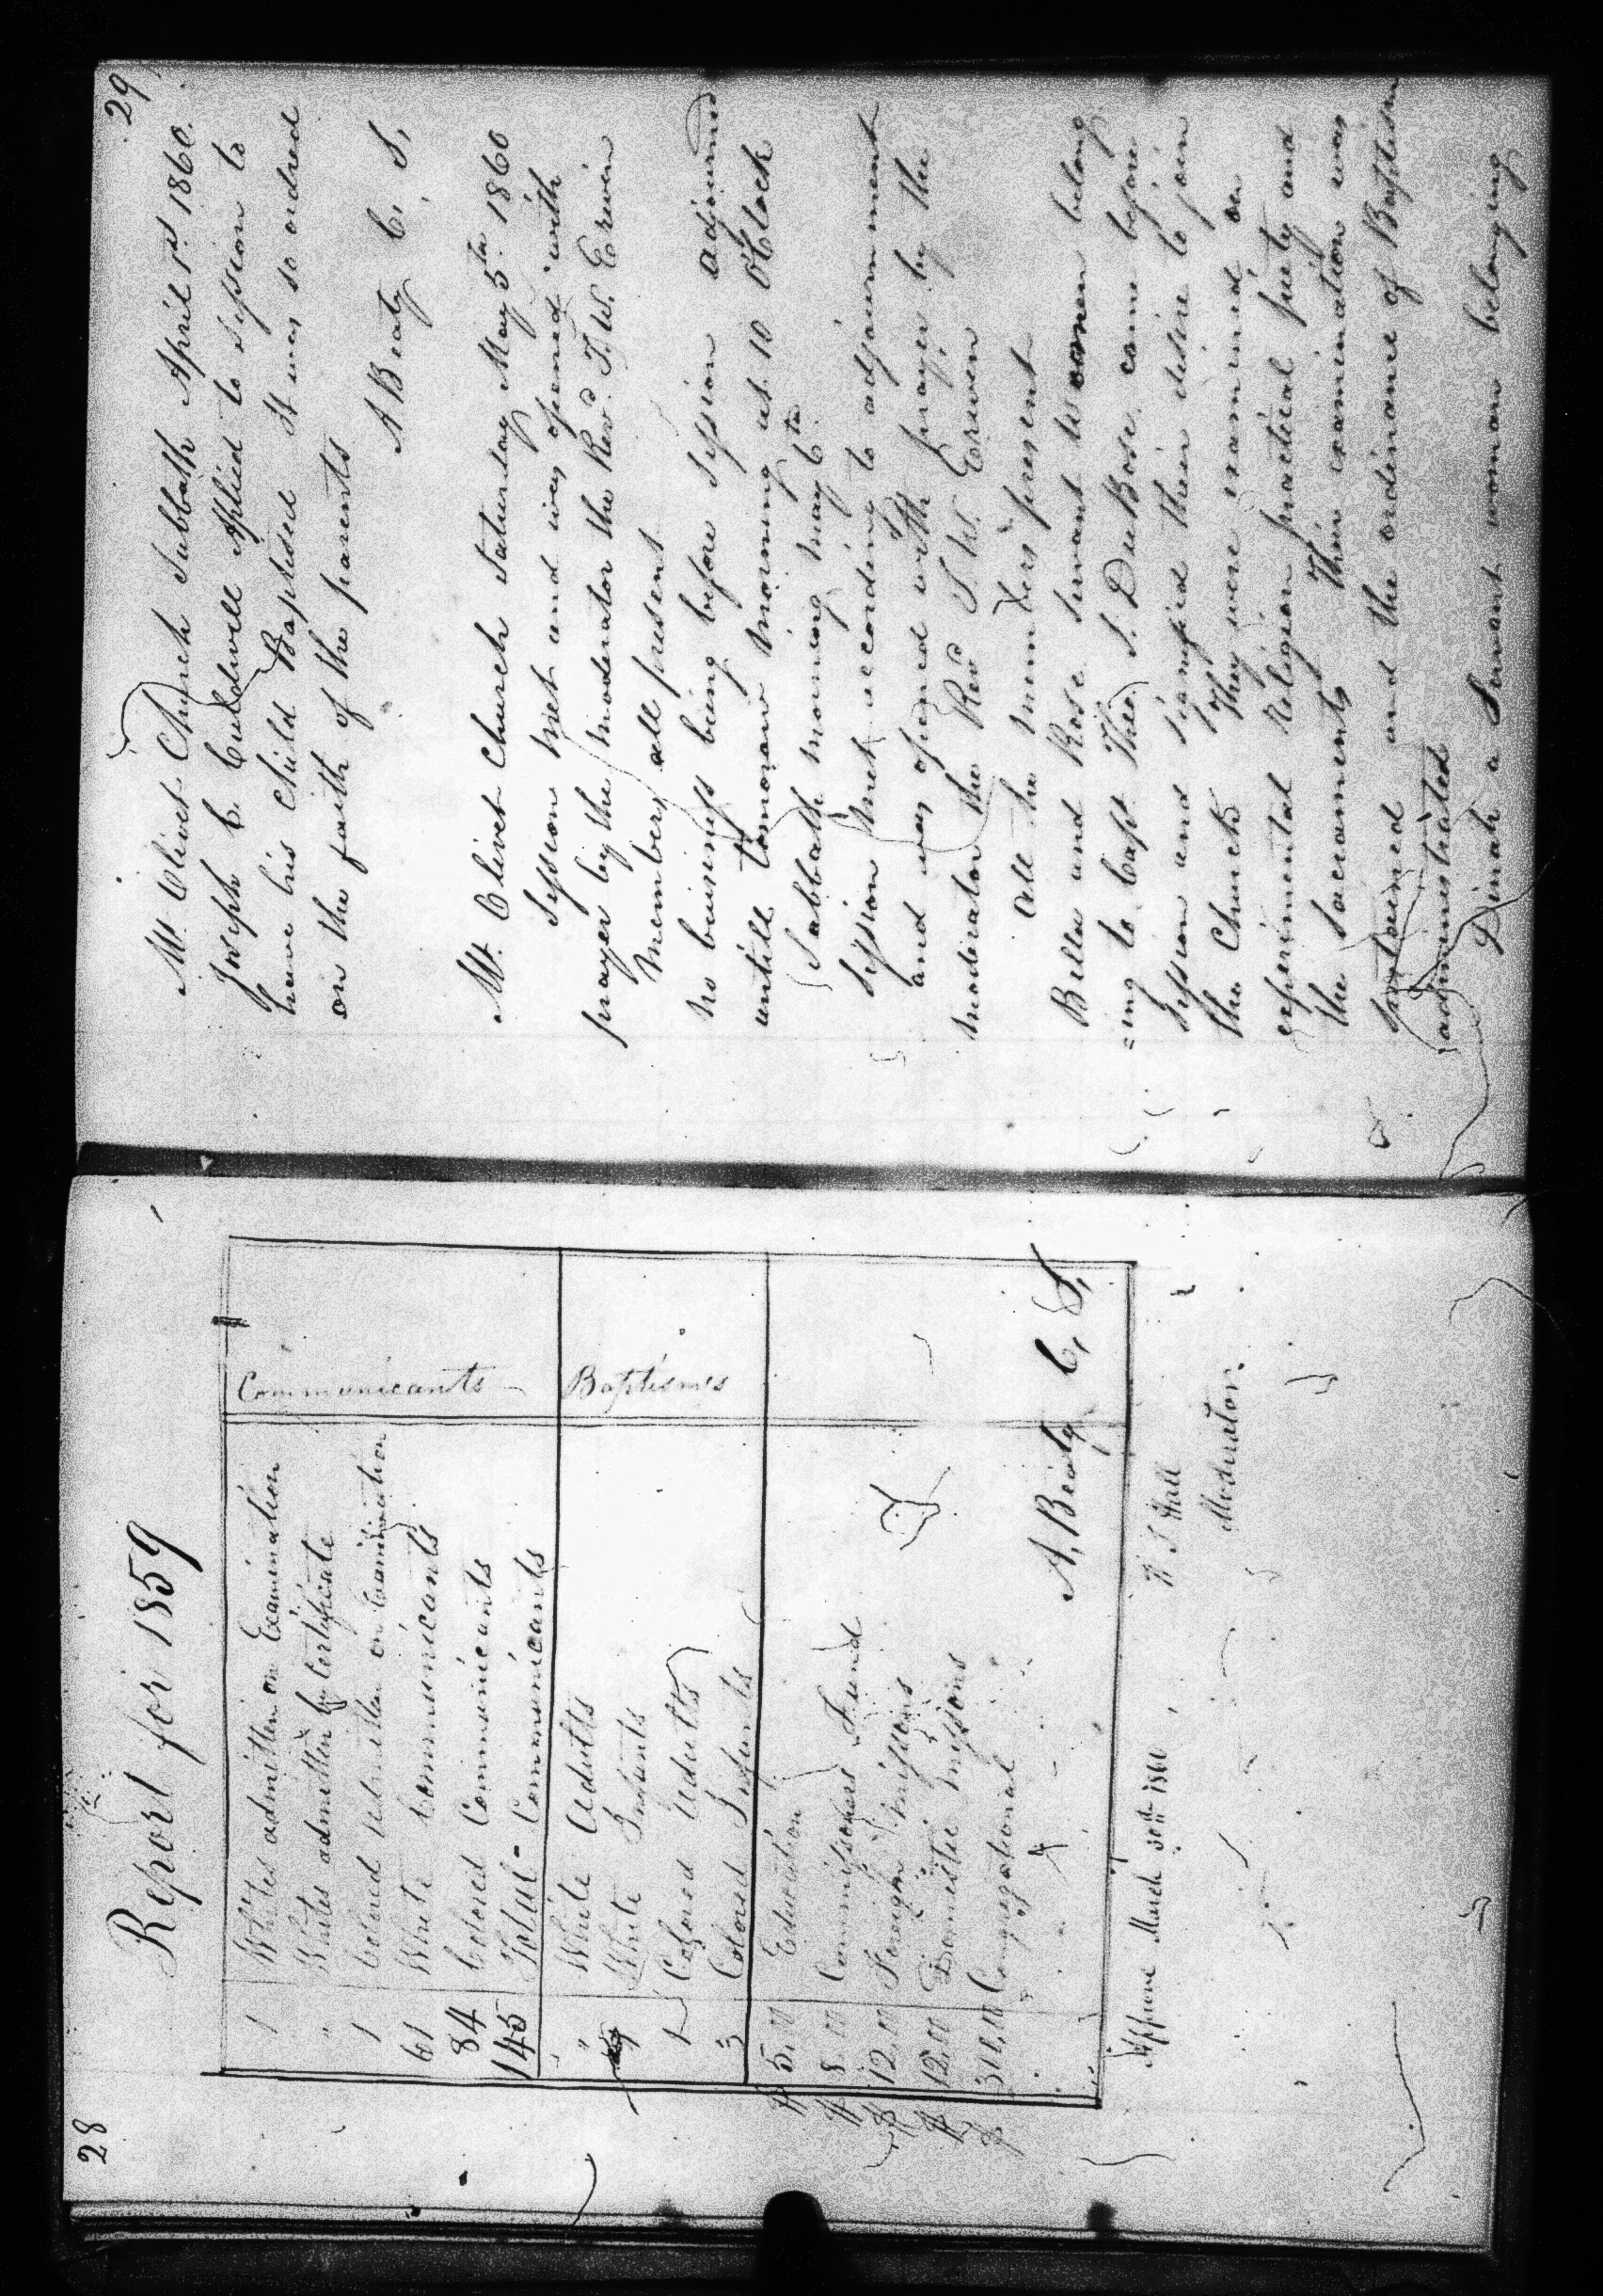 28
Report for 1859
1 Whites admitted on Examination Communicants
" Whites admitted by Certificate
1 Colored admitted on Examination
61 White Communicants
84 Colored Communicants
145 Total - Communicants
" White Adults Baptisms
White Infants
1 Colored Adults
3 Colored Infants
$ 5.00 Education
$ 8.00 Commissioners Fund
$ 12.00 Foreign Missions
$ 12.00 Domestic Missions
$ Congregational
A, Beaty C, S,
Approved March 30th 1860 W S Hall
Moderator.
29
Mt. Olivet Church Sabbath April 1st 1860.
Joseph C. Caldwell Applied to Session to
have his Child Baptised It was so ordred
on the faith of the parents
A Beaty C. S,
Mt. Olivet Church Saturday May 5th 1860
Session met and was opened with
prayer by the moderator the Revd. T. W. Erwin
Members all present
No business being before Session adjourned
untill tomorow morning at 10 OClock
Sabbath morning May 6th
Session met according to adjournment
and was opened with prayer by the
moderator the Revd T. W. Erwin
All the members present
Bella and Rose Servant women belong
=ing to Capt Theo. S. DuBose came before
Session and signified their desire to join
the Church They were examined on
experimental Religion practical piety and
the Sacraments Their examination was
sustained and the ordinance of Baptism
administrated
Dinah a Servant woman belonging